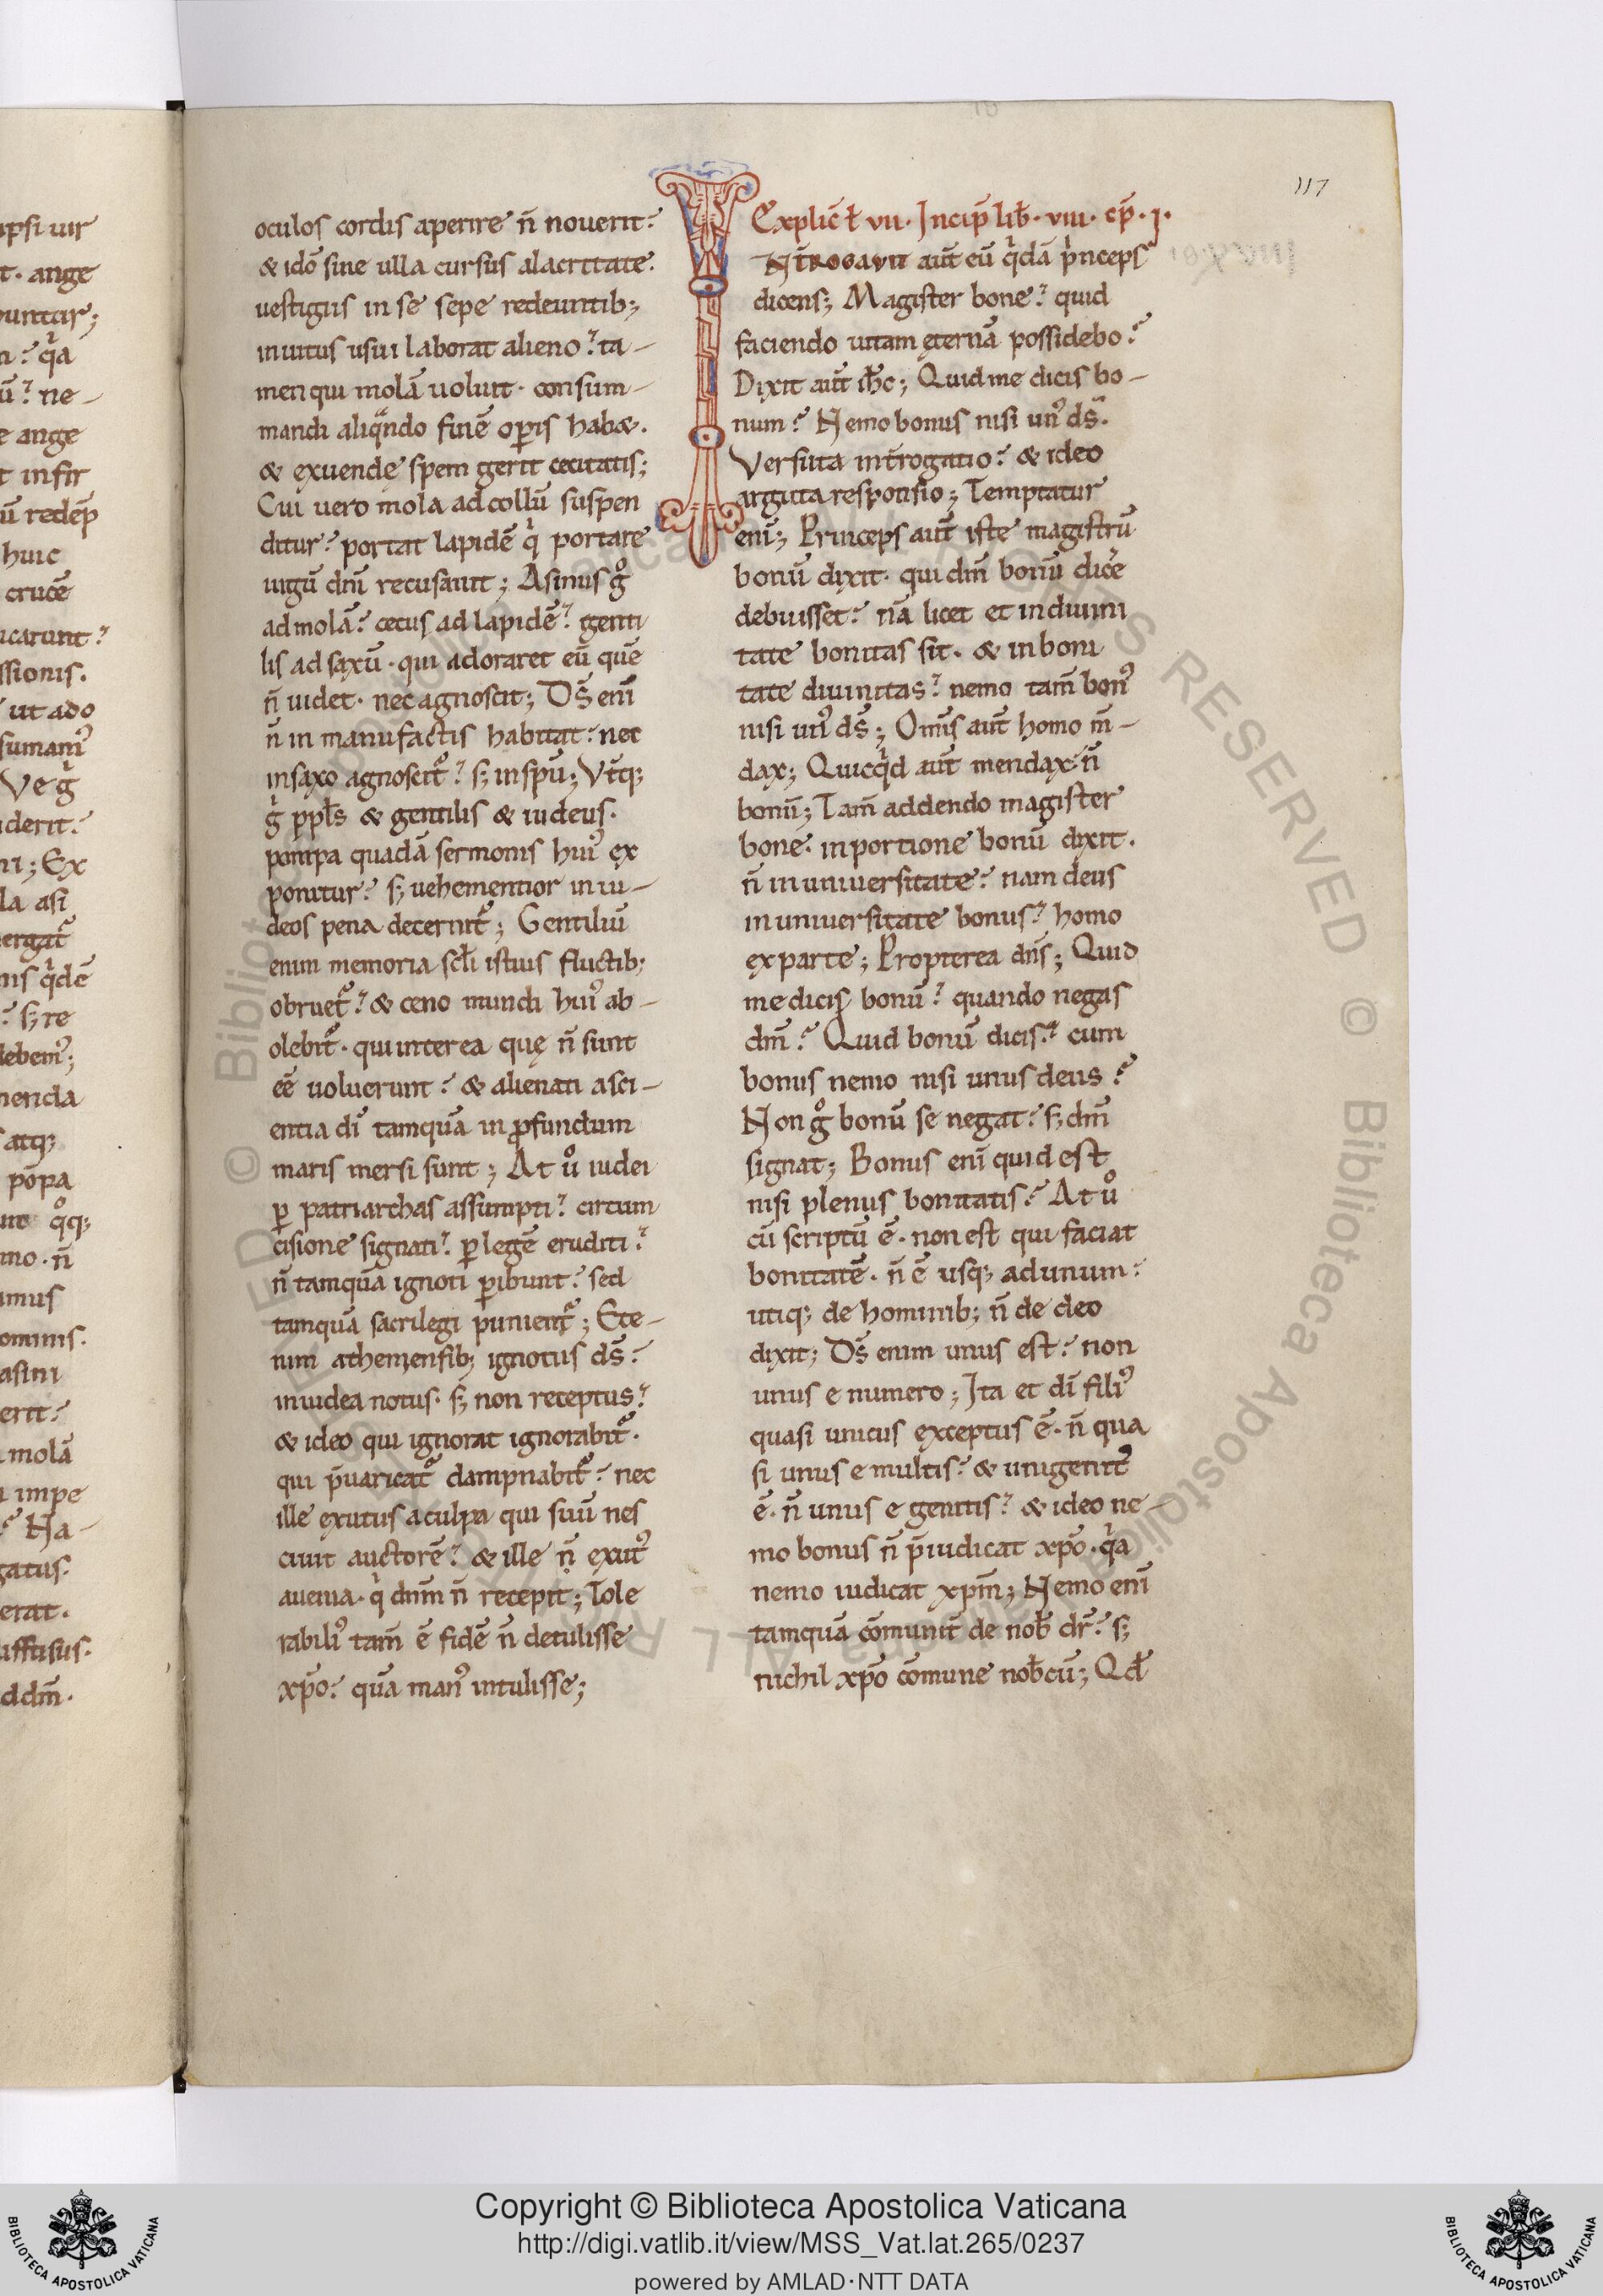 psi uir
t. ange
untur;
n? qͥa
ū? ne-
e ange
t infir
ū redēp
huic
crucē
icarunt?
ssionis.
ut ado
sumam᷒
Ve gͥ
derit?
ni; Ex
la asi
ergat᷑
nis qͥdē
? s; re
lebem᷒;
menda
atq;
pōpa
qͦq;
mo. n̄
imus
ominis.
asini
erit?
molā
impe
? Na-
gatus.
erat.
uffusus.
ddm̄.
oculos cordis aperire n̄ nouerit?
& idō sine ulla cursus alacritate.
uestigiis in se sepe redeuntib;
inuitus usui laborat alieno? ta-
men qui molā uoluit. consum-
mandi aliqᵃndo finē op̲is hab&.
& exuendę spem gerit cecitatis;
Cui uero mola ad collū suspen
ditur? portat lapidē qͥ portare
iugū dn̄i recusauit; Asinus gͦ
ad molā? cecus ad lapidē? genti
lis ad saxū. qui adoraret eū quē
n̄ uidet. nec agnoscit; Ds̄ enī
n̄ in manufactis habitat? nec
in saxo agnoscit᷑? s; in spū; Vt̄q;
gͥ ppl̄s & gentilis & iudeus.
pompa quadā sermonis hui᷒ ex
ponitur? s; uehementior in iu-
deos pena decernit᷑; Gentiliū
enim memoria scl̄i istius fluctib;
obruet᷑? & ceno mundi hui᷒ ab-
olebit᷑. qui interea quę n̄ sunt
eē uoluerunt? & alienati a sci-
entia dī tamquā in ꝓfundum
maris mersi sunt; At uͦ iudei
ꝑ patriarchas assumpti? circum
cisione signati? ꝑ legē eruditi?
n̄ tamquā ignoti ꝑibunt? sed
tamquā sacrilegi punient᷑; Ete-
nim athenensib; ignotus ds̄?
in iudea notus. s; non receptus?
& ideo qui ignorat ignorabit᷑.
qui p̄uaricat᷑ dampnabit᷑? nec
ille exutus a culpa qui suū nes
ciuit auctorē? & ille n̄ exut᷒
a uenia. qͥ dnm̄ n̄ recepit; Tole
rabili᷒ tam̄ ē fidē n̄ detulisse
xp̄o? quā man᷒ intulisse;
117
Explic̄ l̄ vii. Incip̄ lib̄. viii. cp̄. i.
INt̄ROGAVIT aūt eū qͥdā pͥnceps
dicens; Magister bone? quid
faciendo uitam ęternā possidebo?
Dixit aūt ih̄c; Quid me dicis bo-
num? Nemo bonus nisi un᷒ ds̄.
Versuta int̄rogatio? & ideo
arguta responsio; Temptatur
enī; Princeps aūt iste magistrū
bonū dixit. qui dm̄ bonū dic̄e
debuisset? nā licet et in diuini
tate bonitas sit. & in boni
tate diuinitas? nemo tam̄ bon᷒
nisi un᷒ ds̄; Om̄s aūt homo m̄-
dax; Quicqͥd aūt mendax n̄
bonū; Tam̄ addendo magister
bone. in portione bonū dixit.
n̄ in uniuersitate? nam deus
in uniuersitate bonus? homo
ex parte; Propterea dn̄s; Quid
me dicis bonū? quando negas
dm̄? Quid bonū dicis? cum
bonus nemo nisi unus deus?
Non gͦ bonū se negat? s; dm̄
signat; Bonus enī quid est
nisi plenus bonitatis? At uͦ
cū scriptū ē. non est qui faciat
bonitatē. n̄ ē usq; ad unum?
utiq; de hominib; n̄ de deo
dixit; Ds̄ enim unus est? non
unus e numero; Ita et dī fili᷒
quasi unicus exceptus ē. n̄ qua
si unus e multis? & unigenit᷒
ē. n̄ unus e genitis? & ideo ne-
mo bonus n̄ p̄iudicat xp̄o. qͥa
nemo iudicat xp̄m; Nemo enī
tamquā cōmunit̄ de nob̄ dr̄? s;
nichil xp̄o cōmune nob̄cū; Qd̄
© Biblioteca Apostolica Vaticana ALL RIGHTS RESERVED
Copyright © Biblioteca Apostolica Vaticana
http://digi.vatlib.it/view/MSS_Vat.lat.265/0237
powered by AMLAD·NTT DATA
BIBLIOTECA APOSTOLICA VATICANA
BIBLIOTECA APOSTOLICA VATICANA